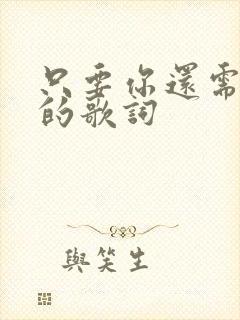 只要你還需
的歌詞
與笑生